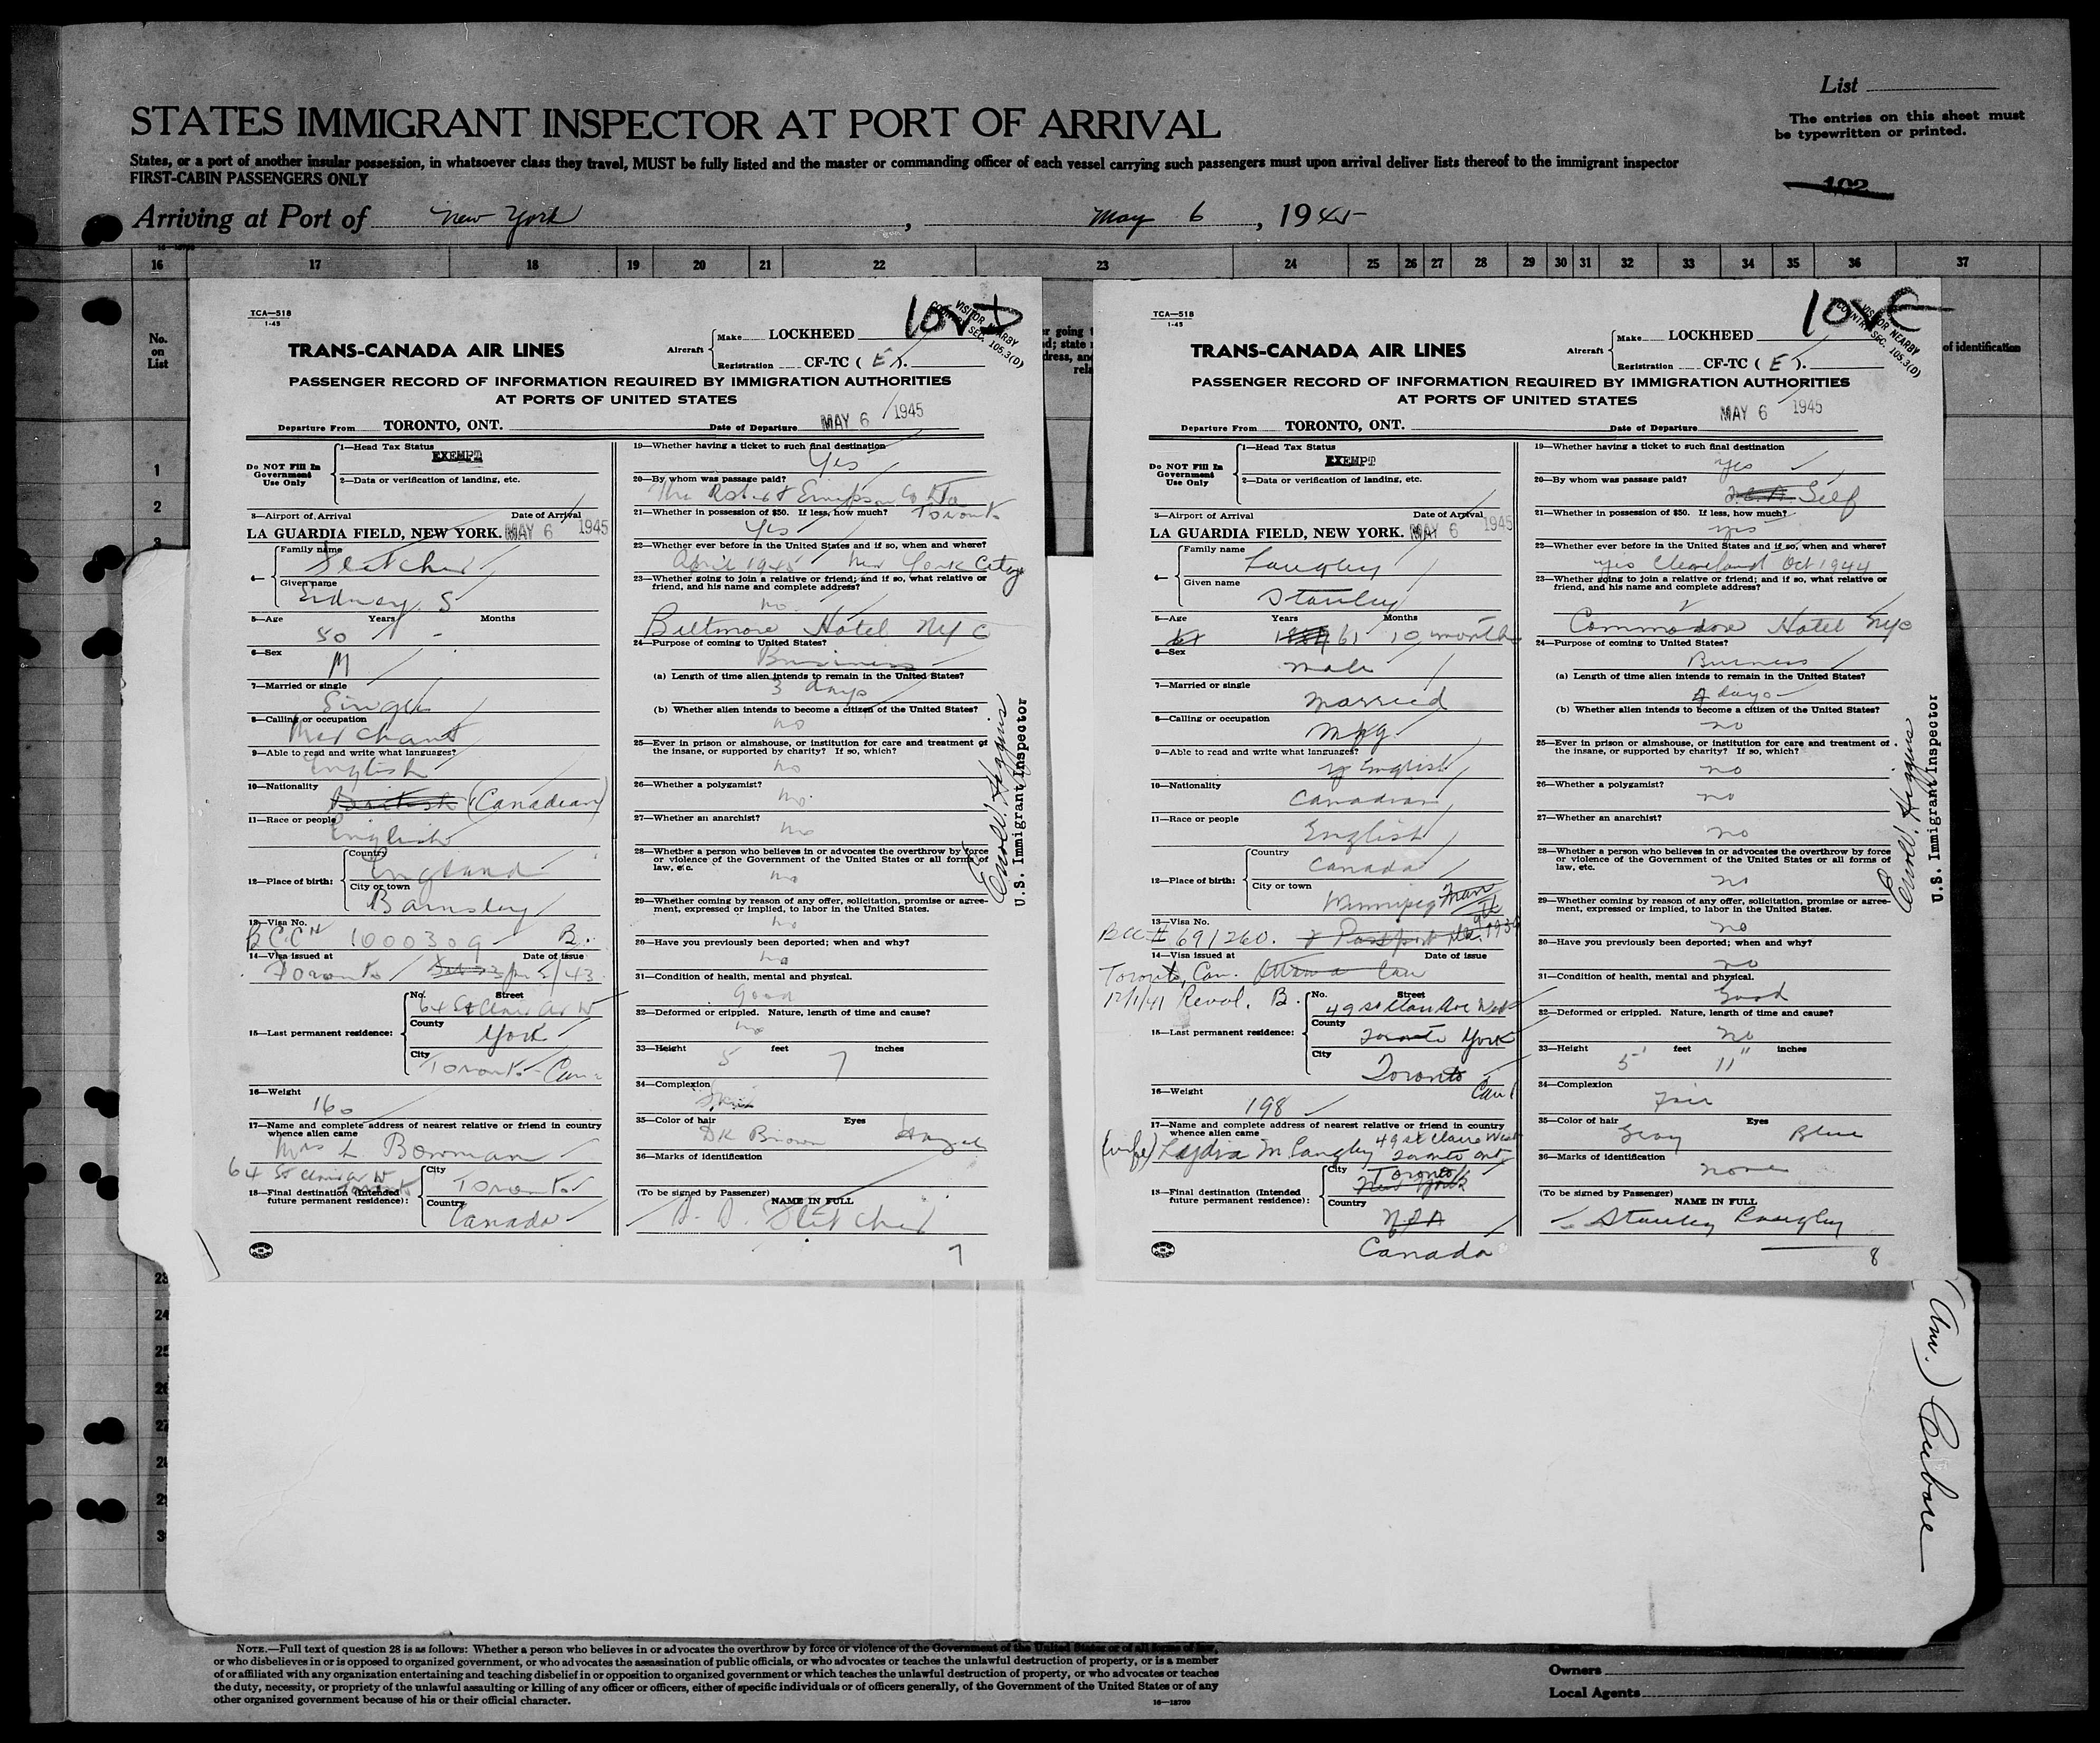 List
STATES IMMIGRANT INSPECTOR AT PORT OF ARRIVAL
The entries on this sheet must
be typewritten or printed.
States, or a port of another insular possession, in whatsoever class they travel, MUST be fully listed and the master or commanding officer of each vessel carrying such passengers must upon arrival deliver lists thereof to the immigrant inspector
FIRST-CABIN PASSENGERS ONLY
102
Arriving at Port of New York, May 6, 1945
16 17 18 19 20 21 22 23 24 25 26 27 28 29 30 31 32 33 34 35 36 37
No.
on
List
of identification
1
2
3
TCA—518
1-45
TRANS-CANADA AIR LINES
Aircraft
Make LOCKHEED
Registration CF-TC ( E ).
VISITOR NEARBY
COUNTRY SEC. 105.3(D)
PASSENGER RECORD OF INFORMATION REQUIRED BY IMMIGRATION AUTHORITIES
AT PORTS OF UNITED STATES
Departure From TORONTO, ONT. Date of Departure MAY 6 1945
Do NOT Fill In
Government
Use Only
1—Head Tax Status
EXEMPT
2—Data or verification of landing, etc.
3—Airport of Arrival Date of Arrival
LA GUARDIA FIELD, NEW YORK. MAY 6 1945
4—
Family name
Given name
Sidney S
5—Age Years Months
50 -
6—Sex
M
7—Married or single
Single
8—Calling or occupation
Merchant
9—Able to read and write what languages?
English
10—Nationality
British (Canadian)
11—Race or people
English
12—Place of birth:
Country
England
City or town
Barnsley
13—Visa No.
BCC# 1000309 B.
14—Visa issued at Date of issue
Toronto /43
15—Last permanent residence:
No. Street
64 St Clair Av W
County
York
City
Toronto Can
16—Weight
160
17—Name and complete address of nearest relative or friend in country
whence alien came
Mrs L Bowman
64 St Clair Av W
18—Final destination (Intended
future permanent residence):
City
Toronto
Country
Canada
19—Whether having a ticket to such final destination
Yes
20—By whom was passage paid?
The Robert Simpson Co Ltd
Toronto
21—Whether in possession of $50. If less, how much?
Yes
22—Whether ever before in the United States and if so, when and where?
April 1945 New York City
23—Whether going to join a relative or friend; and if so, what relative or
friend, and his name and complete address?
no
Biltmore Hotel NYC
24—Purpose of coming to United States?
Business
(a) Length of time alien intends to remain in the United States?
3 days
(b) Whether alien intends to become a citizen of the United States?
no
25—Ever in prison or almshouse, or institution for care and treatment of
the insane, or supported by charity? If so, which?
no
26—Whether a polygamist?
no
27—Whether an anarchist?
no
28—Whether a person who believes in or advocates the overthrow by force
or violence of the Government of the United States or all forms of
law, etc.
no
29—Whether coming by reason of any offer, solicitation, promise or agree-
ment, expressed or implied, to labor in the United States.
no
30—Have you previously been deported; when and why?
no
31—Condition of health, mental and physical.
Good
32—Deformed or crippled. Nature, length of time and cause?
no
33—Height 5 feet 7 inches
34—Complexion
35—Color of hair Eyes
DK Brown Hazel
36—Marks of identification
(To be signed by Passenger)
NAME IN FULL
7
U.S. Immigrant Inspector
TCA—518
1-45
TRANS-CANADA AIR LINES
Aircraft
Make LOCKHEED
Registration CF-TC ( E ).
VISITOR NEARBY
COUNTRY SEC. 105.3(D)
PASSENGER RECORD OF INFORMATION REQUIRED BY IMMIGRATION AUTHORITIES
AT PORTS OF UNITED STATES
Departure From TORONTO, ONT. Date of Departure MAY 6 1945
Do NOT Fill In
Government
Use Only
1—Head Tax Status
EXEMPT
2—Data or verification of landing, etc.
3—Airport of Arrival Date of Arrival
LA GUARDIA FIELD, NEW YORK. MAY 6 1945
4—
Family name
Langley
Given name
Stanley
5—Age Years Months
61 10 months
6—Sex
male
7—Married or single
married
8—Calling or occupation
Mfg.
9—Able to read and write what languages?
English
10—Nationality
Canadian
11—Race or people
English
12—Place of birth:
Country
Canada
City or town
Winnipeg Man
13—Visa No.
BCC# 691260. Passport
14—Visa issued at Date of issue
Toronto, Can. Ottawa Can
12/1/41 Reval. B.
15—Last permanent residence:
No. Street
49 St Clair Ave West
County
Toronto York
City
Toronto
Can
16—Weight
198
17—Name and complete address of nearest relative or friend in country
whence alien came
(wife) Lydia M Langley 49 St Claire West
Toronto Ont
18—Final destination (Intended
future permanent residence):
City
Toronto
New York
Country
Canada
19—Whether having a ticket to such final destination
yes
20—By whom was passage paid?
Self
21—Whether in possession of $50. If less, how much?
yes
22—Whether ever before in the United States and if so, when and where?
yes Cleveland Oct 1944
23—Whether going to join a relative or friend; and if so, what relative or
friend, and his name and complete address?
Commodore Hotel NYC
24—Purpose of coming to United States?
Business
(a) Length of time alien intends to remain in the United States?
days
(b) Whether alien intends to become a citizen of the United States?
no
25—Ever in prison or almshouse, or institution for care and treatment of
the insane, or supported by charity? If so, which?
no
26—Whether a polygamist?
no
27—Whether an anarchist?
no
28—Whether a person who believes in or advocates the overthrow by force
or violence of the Government of the United States or all forms of
law, etc.
no
29—Whether coming by reason of any offer, solicitation, promise or agree-
ment, expressed or implied, to labor in the United States.
no
30—Have you previously been deported; when and why?
no
31—Condition of health, mental and physical.
Good
32—Deformed or crippled. Nature, length of time and cause?
no
33—Height 5' feet 11" inches
34—Complexion
Fair
35—Color of hair Eyes
Gray Blue
36—Marks of identification
none
(To be signed by Passenger)
NAME IN FULL
Stanley Langley
8
U.S. Immigrant Inspector
23
24
25
26
27
28
29
30
NOTE.—Full text of question 28 is as follows: Whether a person who believes in or advocates the overthrow by force or violence of the Government of the United States or of all forms of law,
or who disbelieves in or is opposed to organized government, or who advocates the assassination of public officials, or who advocates or teaches the unlawful destruction of property, or is a member
of or affiliated with any organization entertaining and teaching disbelief in or opposition to organized government or which teaches the unlawful destruction of property, or who advocates or teaches
the duty, necessity, or propriety of the unlawful assaulting or killing of any officer or officers, either of specific individuals or of officers generally, of the Government of the United States or of any
other organized government because of his or their official character.
16—18709
Owners
Local Agents